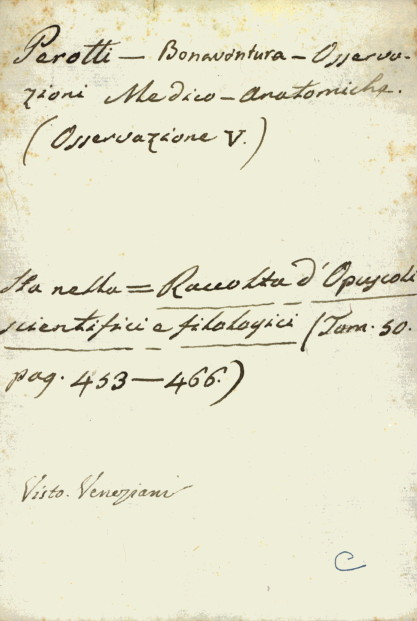 Perotti — Bonaventura — Osserva-
zioni Medico — anatomiche.
(Osservazione V.)
Sta nella = Raccolta d'Opuscoli
scientifici e filologici (Tom. 50.
pag. 453 — 466.)
Visto. Veneziani
C